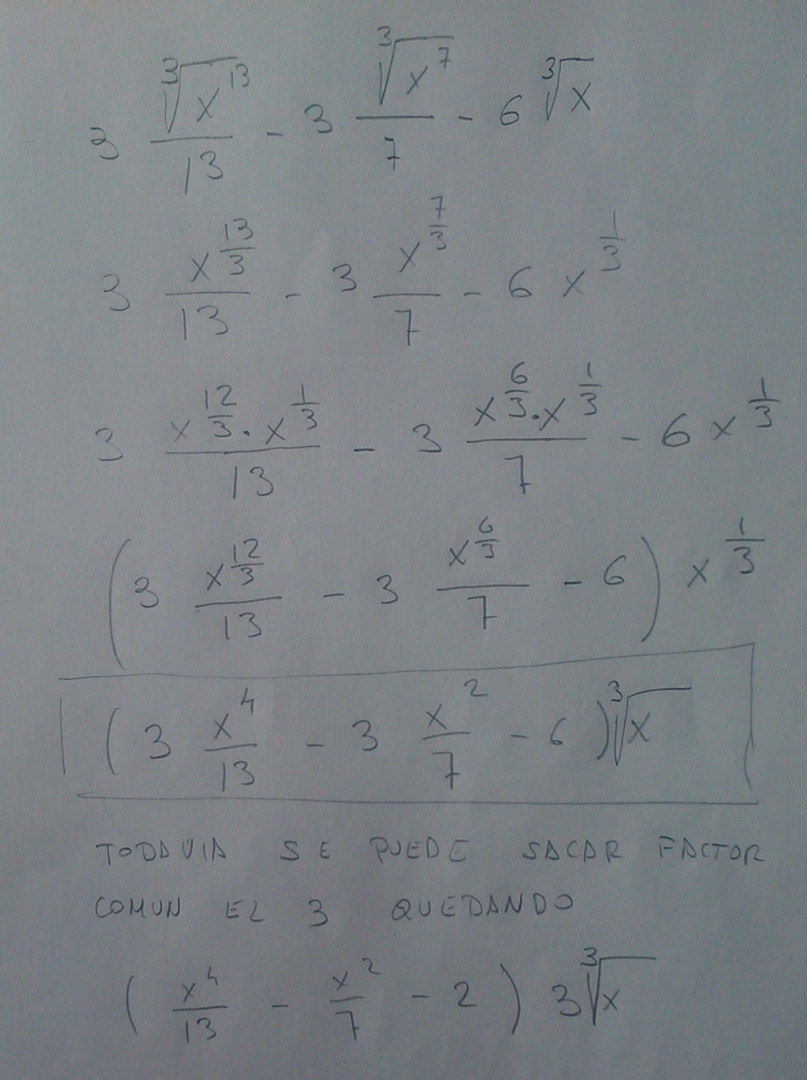 3 ∛(x^13)/13 - 3 ∛(x^7)/7 - 6 ∛x
3 x^(13/3)/13 - 3 x^(7/3)/7 - 6 x^(1/3)
3 (x^(12/3) · x^(1/3))/13 - 3 (x^(6/3) · x^(1/3))/7 - 6 x^(1/3)
(3 x^(12/3)/13 - 3 x^(6/3)/7 - 6) x^(1/3)
(3 x^4/13 - 3 x^2/7 - 6) ∛x
TODAVIA SE PUEDE SACAR FACTOR
COMUN EL 3 QUEDANDO
(x^4/13 - x^2/7 - 2) 3 ∛x